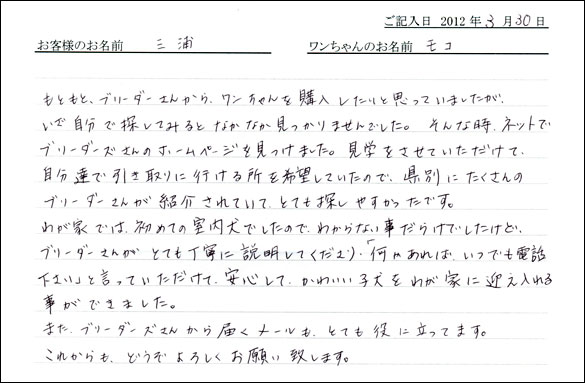 ご記入日 2012年3月30日
お客様のお名前 三浦 ワンちゃんのお名前 モコ
もともと、ブリーダーさんから、ワンちゃんを購入したいと思っていましたが、
いざ自分で探してみるとなかなか見つかりませんでした。そんな時、ネットで
ブリーダーズさんのホームページを見つけました。見学をさせていただけて、
自分達で引き取りに行ける所を希望していたので、県別にたくさんの
ブリーダーさんが紹介されていて、とても探しやすかったです。
わが家では、初めての室内犬でしたので、わからない事だらけでしたけど、
ブリーダーさんがとても丁寧に説明してくださり、「何かあれば、いつでも電話
下さい」と言っていただけて、安心して、かわいい子犬をわが家に迎え入れる
事ができました。
また、ブリーダーズさんから届くメールも、とても役に立ってます。
これからも、どうぞよろしくお願い致します。